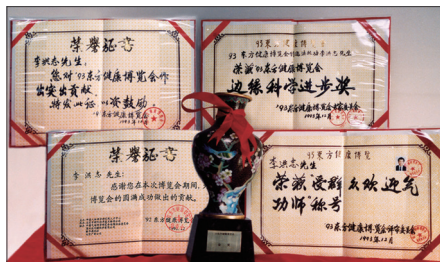 荣誉证书
李洪志先生:
您对'93东方健康博览会作
出突出贡献,
特发此证 以资鼓励。
'93东方健康博览会
1993年12月
'93东方健康博览会
荣获'93东方健康博览会
边缘科学进步奖
'93东方健康博览会
1993年12月
荣誉证书
李洪志先生:
感谢您在本次博览会期间,
博览会的圆满成功做出的贡献。
'93东方健康博览会
'93东方健康博览
李洪志先生
荣获"受群众欢迎气
功师"称号
'93东方健康博览会评审委员会
1993年12月